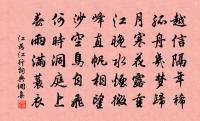 越信隔年稀
孤舟幾夢歸
月寒花露重
江晚水煙微
峰直帆相望
沙空鳥自飛
何時洞庭上
春雨滿蓑衣
江為江行詞典網集